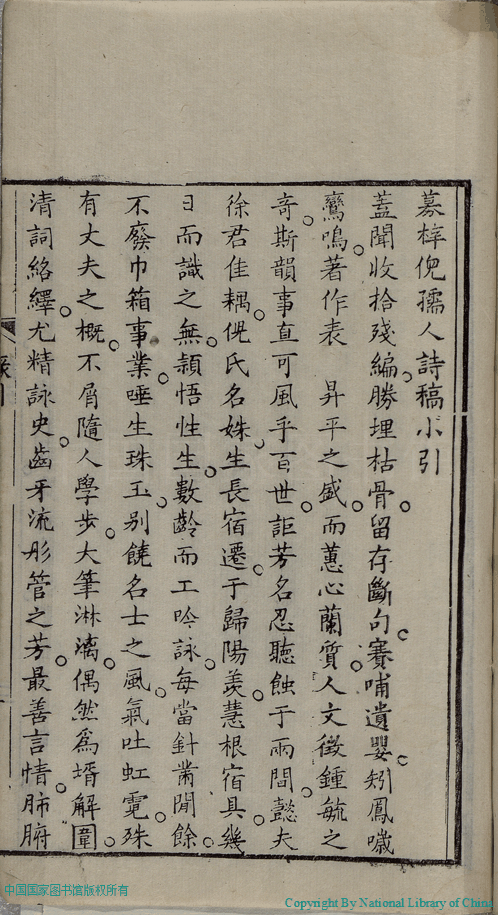 募梓倪孺人詩稿小引
蓋聞收拾殘編勝埋枯骨留存斷句賽哺遺嬰矧鳳噦
鸞鳴著作表 昇平之盛而蕙心蘭質人文徵鍾毓之
奇斯韻事直可風乎百世詎芳名忍聽蝕于兩間懿夫
徐君佳耦倪氏名姝生長宿遷于歸陽羨慧根宿具幾
日而識之無穎悟性生數齡而工吟詠每當針黹閒餘
不廢巾箱事業唾生珠玉別饒名士之風氣吐虹霓殊
有丈夫之概不屑隨人學步大筆淋漓偶然為壻解圍
清詞絡繹尤精詠史齒牙流彤管之芳最善言情肺腑
中国国家图书馆版权所有
Copyright By National Library of China